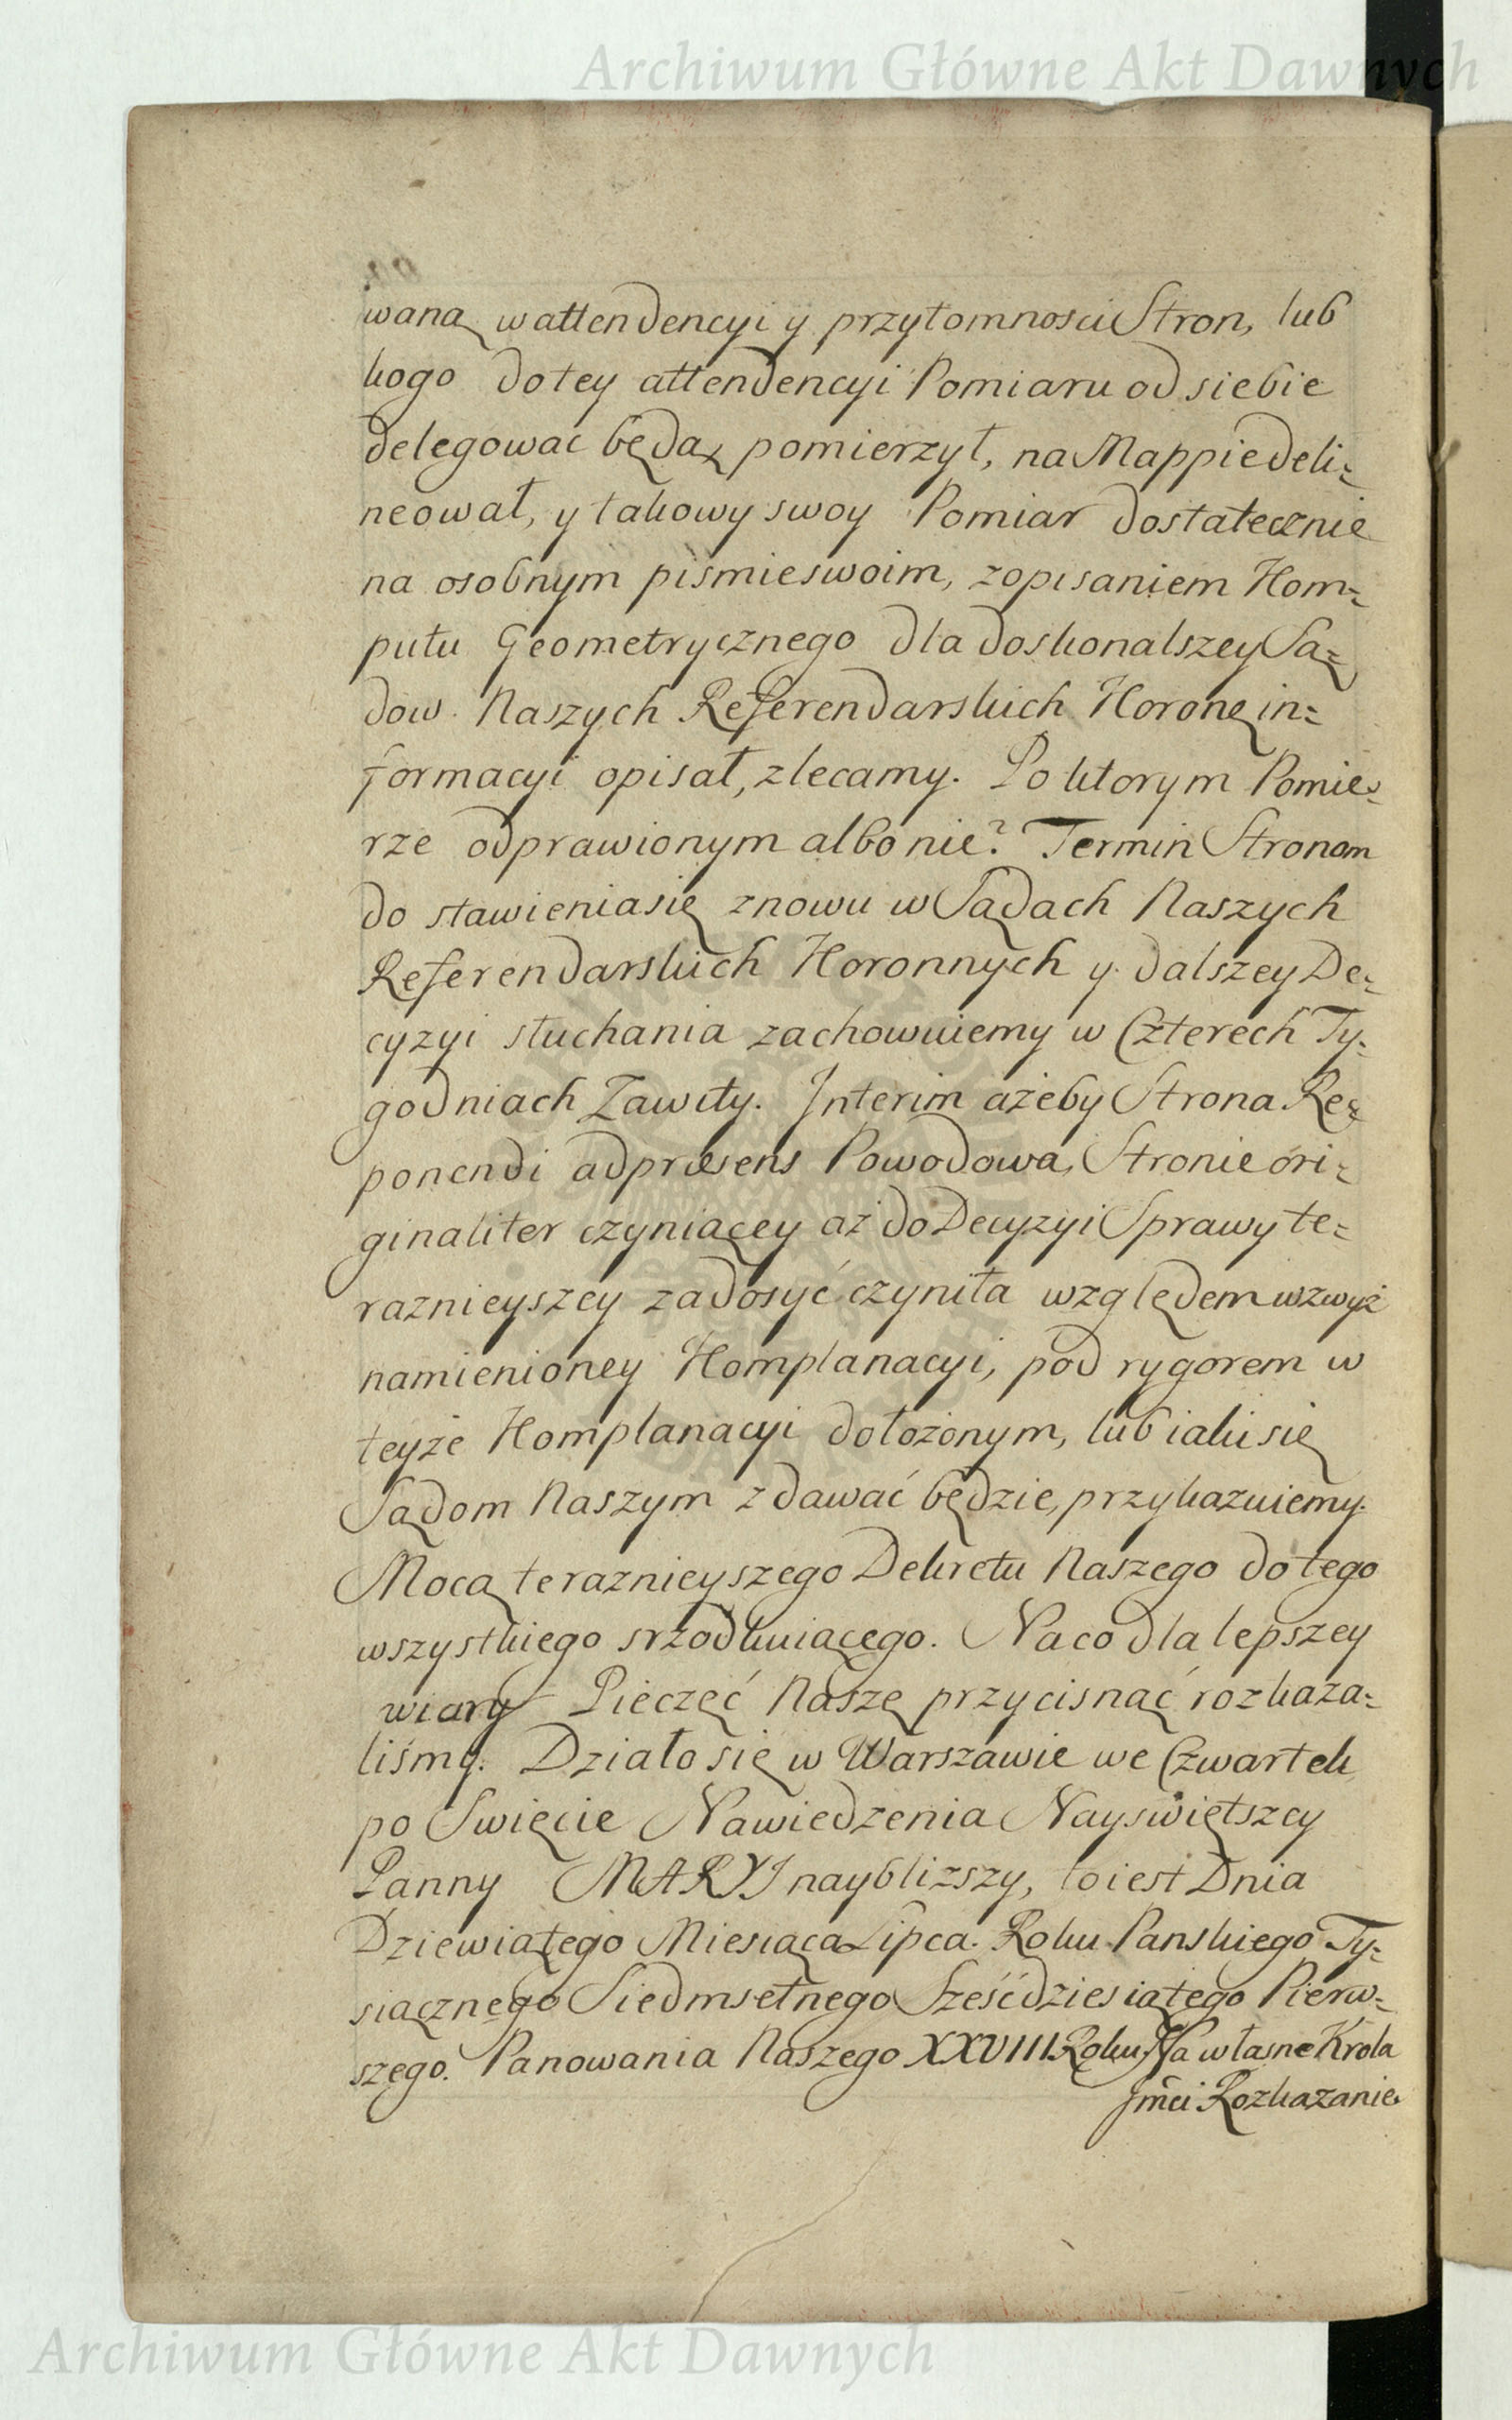 Archiwum Główne Akt Dawnych
waną w attendencyi y przytomnosci Stron, lub
kogo do tey attendencyi Pomiaru od siebie
delegowac będą, pomierzył, na Mappie deli=
neował, y takowy swoy Pomiar dostatecznie
na osobnym pismie swoim, z opisaniem Kom=
putu Geometrycznego dla doskonalszey Są=
dow Naszych Referendarskich Koronę in=
formacyi opisał, zlecamy. Po ktorym Pomie=
rze odprawionym albo nie? Termin Stronom
do stawienia się znowu w Sądach Naszych
Referendarskich Koronnych y dalszey De=
cyzyi słuchania zachowuiemy w Czterech Ty=
godniach Zawity. Interim ażeby Strona Re=
ponendi ad præsens Powodowa, Stronie ori=
ginaliter czyniącey aż do Decyzyi Sprawy te=
raznieyszey zadosyć czyniła względem wzwyż
namienioney Komplanacyi, pod rygorem w
teyże Komplanacyi dołożonym, lub iaki się
Sądom Naszym zdawać będzie, przykazuiemy.
Mocą teraznieyszego Dekretu Naszego do tego
wszystkiego srzodkuiącego. Na co dla lepszey
wiary Pieczęć Naszę przycisnąć rozkaza=
liśmy. Działo się w Warszawie we Czwartek
po Swięcie Nawiedzenia Nayswiętszey
Panny MARYI naybliższy, to iest Dnia
Dziewiątego Miesiąca Lipca. Roku Panskiego Ty=
siącznego Siedmsetnego Sześćdziesiątego Pierw=
szego. Panowania Naszego XXVIII Roku. Na własne Krola
Jmći Rozkazanie.
Archiwum Główne Akt Dawnych